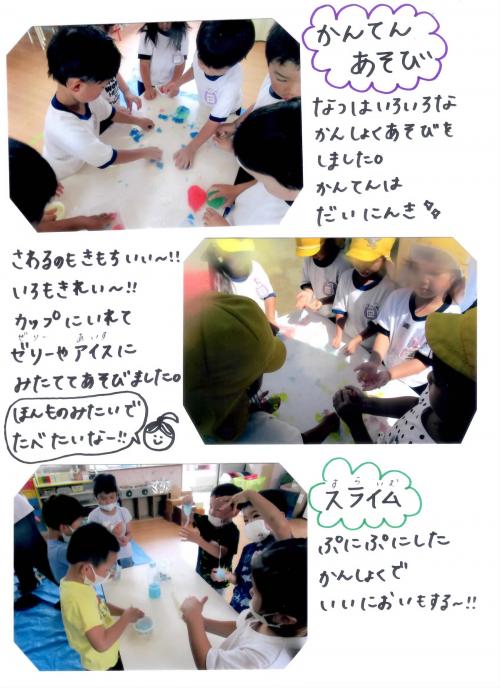 かんてん
あそび
なつはいろいろな
かんしょくあそびを
しました。
かんてんは
だいにんき
さわるのもきもちいい〜!!
いろもきれい〜!!
カップにいれて
ゼリーやアイスに
ぜりー あいす
みたててあそびました。
ほんものみたいで
たべたいなー!!
すらいむ
スライム
ぷにぷにした
かんしょくで
いいにおいもする〜!!